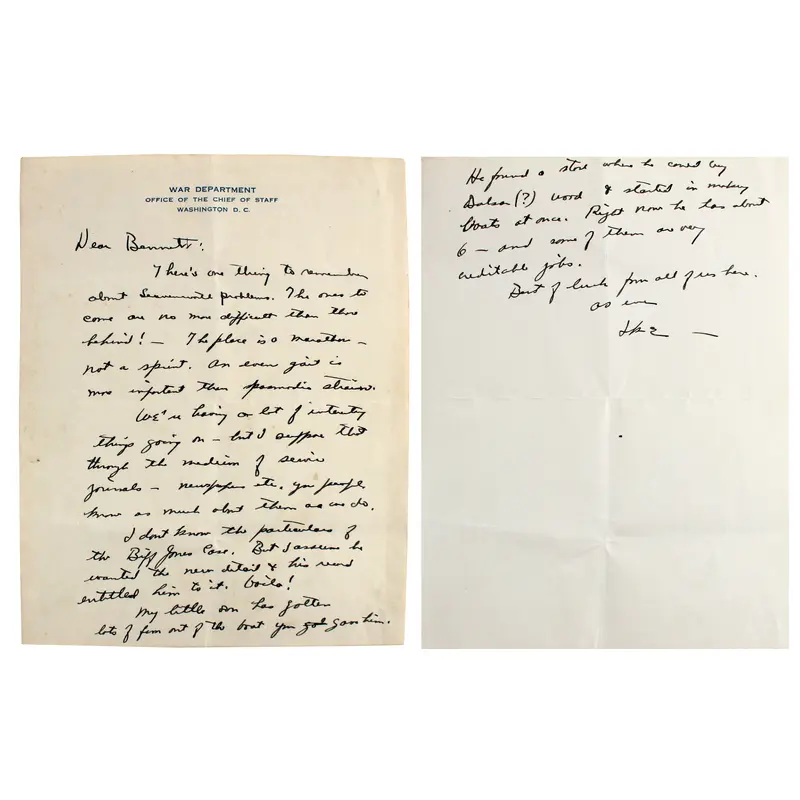 WAR DEPARTMENT
OFFICE OF THE CHIEF OF STAFF
WASHINGTON D. C.
Dear Bennett:
There's one thing to remember
about Leavenworth problems. The ones to
come are no more difficult than those
behind! — The place is a marathon –
not a sprint. An even gait is
more important than spasmodic strains.
We're having a lot of interesting
things going on – but I suppose that
through the medium of service
journals – newspapers etc. you people
know as much about them as we do.
I don't know the particulars of
the Biff Jones Case. But I assume he
wanted the new detail & his record
entitled him to it. Voila!
My little son has gotten
lots of fun out of the boat you gave him.
He found a store where he could buy
Balsa(?) wood & started in making
boats at once. Right now he has about
6 – and some of them are very
creditable jobs.
Best of luck from all of us here.
as ever
Ike —